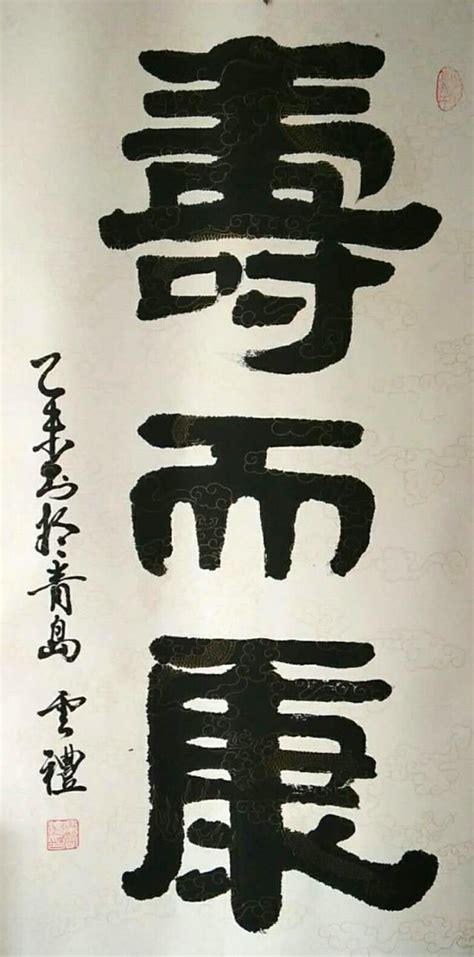 壽而康
乙未书於青島 雲禮